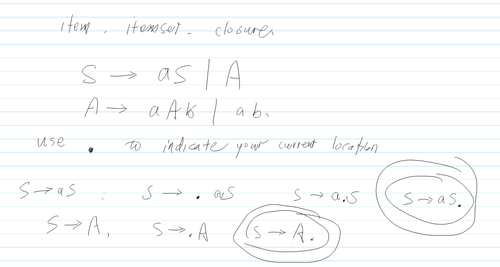 item. itemset. closure
S → aS | A
A → aAb | ab.
use • to indicate your current location
S → aS : S → .aS S → a.S S → aS.
S → A, S → .A S → A.